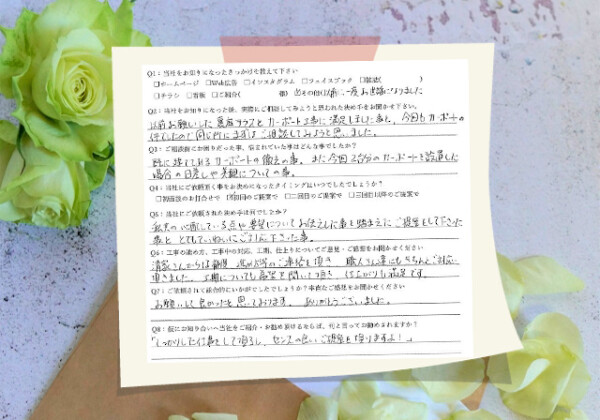 Q1：当社をお知りになったきっかけを教えて下さい
□ホームページ □Web広告 □インスタグラム □フェイスブック □雑誌( )
□チラシ □看板 □ご紹介( 様) ☑その他(以前に一度お世話になりました
Q2：当社をお知りになった後、実際にご相談してみようと思われた決め手をお聞かせ下さい。
以前お願いした裏庭テラスとカーポート工事に満足しました事と、今回もカーポートの
件でしたので同じ所にまずはご相談してみようと思いました。
Q3：ご相談前にお困りだった事、悩まれていた事はどんな事でしたか？
既に建ててあるカーポートの撤去の事。また今回2台分のカーポートを設置した
場合の目隠しや外観についての事。
Q4：当社にご依頼頂く事をお決めになったタイミングはいつでしたでしょうか？
□初回店のお打合せで ☑初回のご提案で □二回目のご提案で □三回目以降のご提案で
Q5：当社にご依頼された決め手は何でしたか？
私共の心配している点や要望についてお伝えした事を踏まえたご提案をして下さった
事ととてもていねいにご対応下さった事。
Q6：工事の進め方、工事中の対応、工期、仕上りについてご意見・ご感想をお聞かせください
頂きました。工期についても希望を聞いて頂き、仕上がりも満足です。
Q7：ご依頼されて総合的にいかがでしたでしょうか？率直なご感想をお聞かせください
お願いして良かったと思っております。ありがとうございました。
Q8：仮にお知り合いへ当社をご紹介・お勧め頂けるならば、何と言ってお勧めされますか？
「しっかりした仕事をして頂けるし、センスの良いご提案も頂けますよ！」